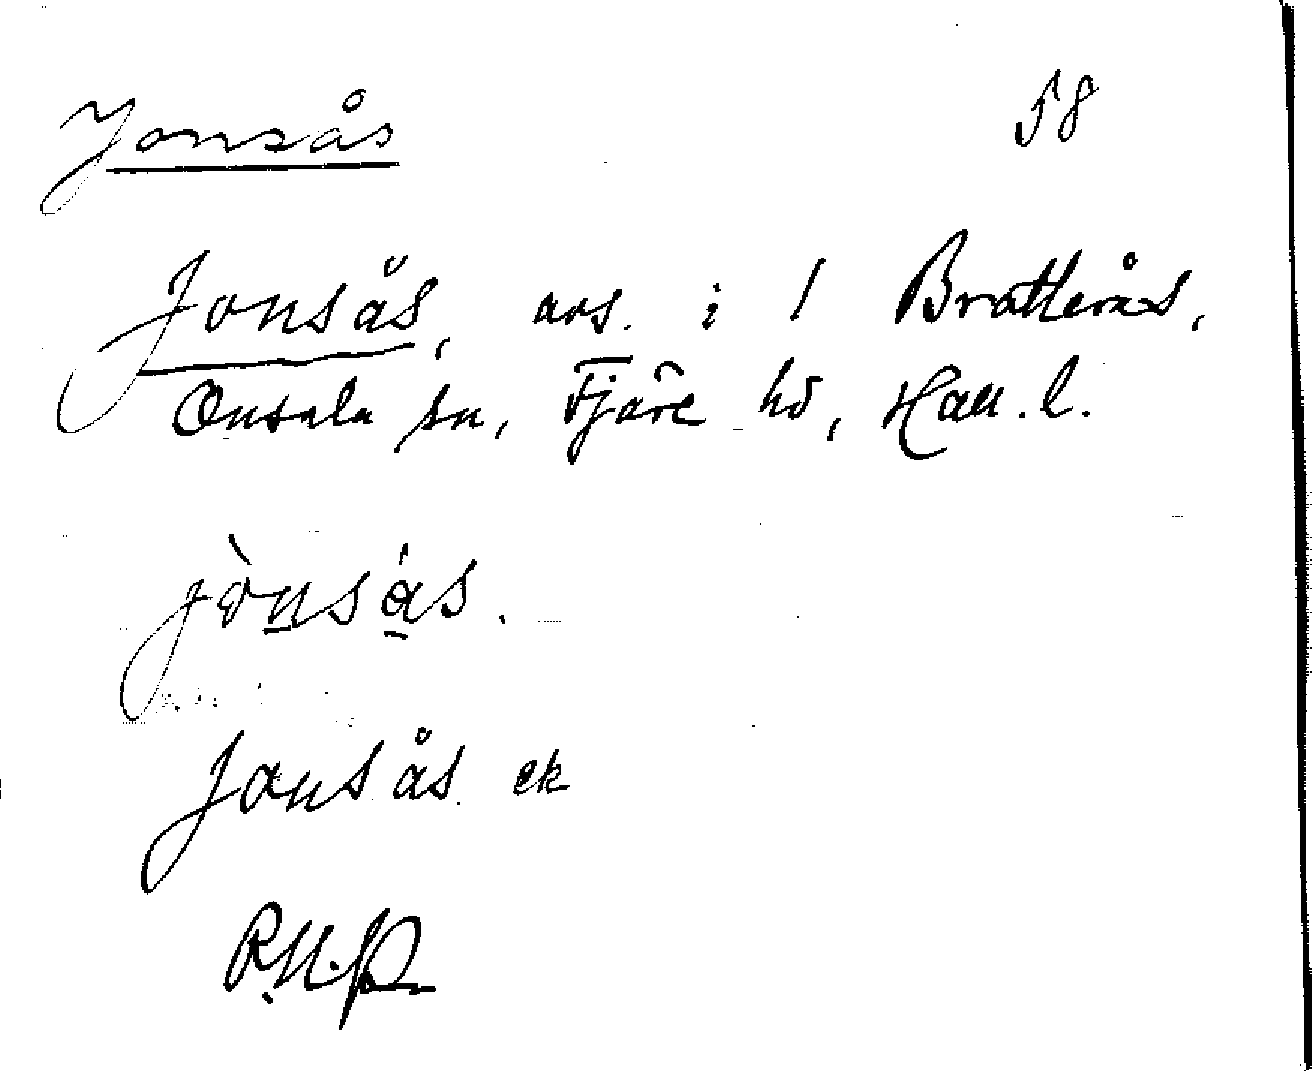 Jonsås 58
Jonsås, avs. i 1 Bratterås,
Onsala sn, Fjäre hd, Hall. l.
jònsás.
Jonsås ek